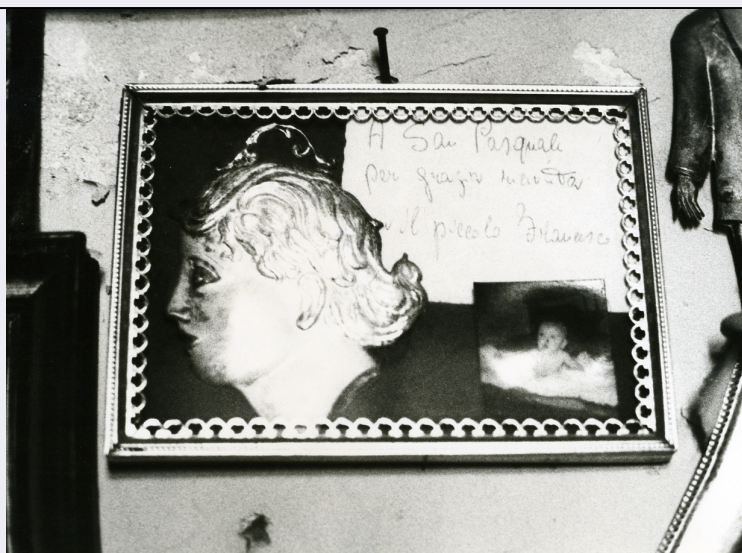 A San Pasquale
per grazia ricevuta
il piccolo Francesco